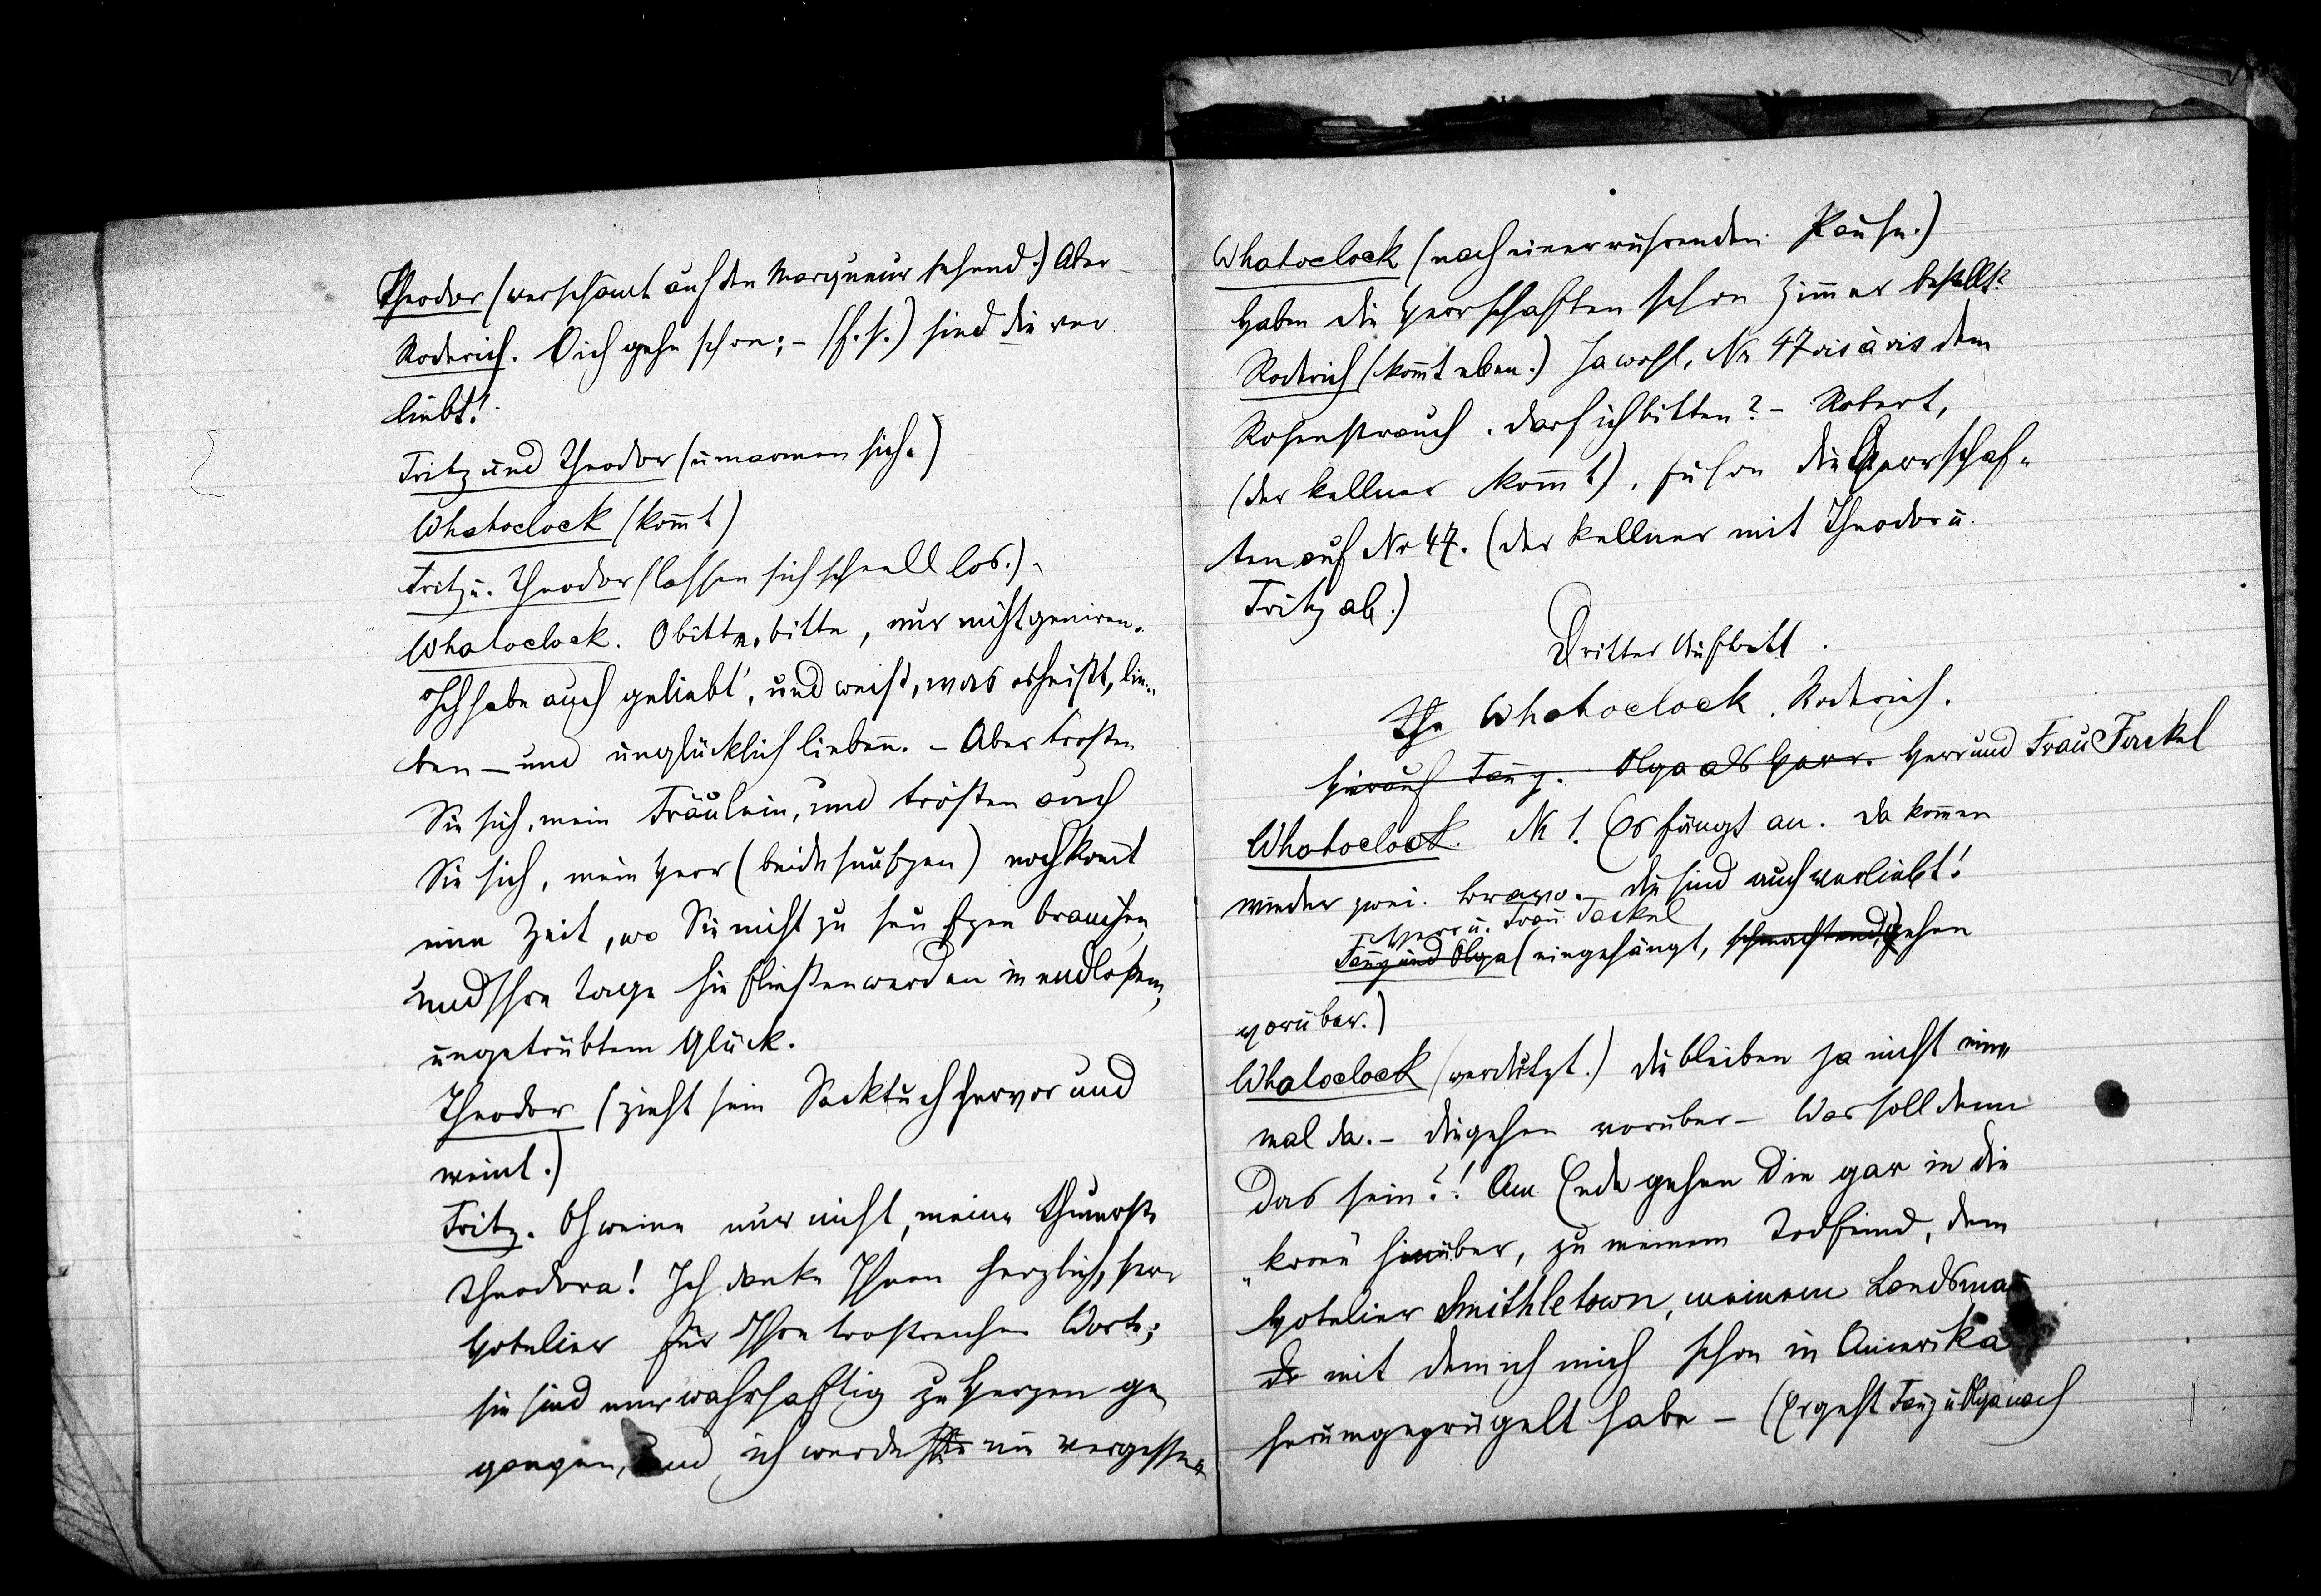 Theodor (verschämt auf den Marqueur sehend.) Aber –
Roderich. O ich gehe schon; – (f. s.) sind die ver
liebt!
Fritz und Theodor (umarmen sich.)
Whatoclock (kom̄t)
Fritz u. Theodor (lassen sich schnell los.)
Whatoclock. O bitte, bitte, nur nicht geniren.
Ich habe auch geliebt, und weiß, was es heißt, lie-
ben – und unglücklich lieben. – Aber trösten
Sie sich, mein Fräulein, und trösten auch
Sie sich, mein Herr (beide seufzen) noch kom̄t
eine Zeit, wo Sie nicht zu seufzen brauchen,
und Ihre Tage hinfließen werden in endlosem,
ungetrübtem Glück.
Theodor (zieht sein Sacktuch hervor und
weint.)
Fritz. O weine nur nicht, meine theuerste
Theodora! Ich danke Ihnen herzlich, Herr
Hotelier für Ihre trostreichen Worte;
sie sind mir wahrhaftig zu Herzen ge
gangen, und ich werde sie nie vergessen
Whatoclock (nach einer rührenden Pause.)
Haben die Herrschaften schon Zim̄er bestellt?
Roderich (kom̄t eben.) Ja wohl, Nr 47 vis à vis dem
Rosenstrauch. Darf ich bitten? – Robert,
(der Kellner kom̄t), führe die Herrschaf-
ten auf Nr 47. (Der Kellner mit Theodor u.
Fritz ab.)
Dritter Auftritt.
The Whatoclock. Roderich.
Hierauf Fan̄y. Olga als Herr. Herr und Frau Fackel
Whatoclock. N 1. Es fängt an. Da kom̄en
wieder zwei. bravo. – die sind auch verliebt!
Herr u. Frau Fackel
Fan̄y und Olga (eingehängt, schmachtend, gehen
vorüber.)
Whatoclock (verdutzt.) Die bleiben ja nicht ein-
mal da. – die gehen vorüber – Was soll denn
Das sein?! Am Ende gehen die gar in die
hinüber, zu meinem Todfeind, dem
Hotelier Smithletown, meinem Landsman̄
De mit dem ich mich schon in Amerika
herumgeprügelt habe – (Er geht Fan̄y u Olga nach